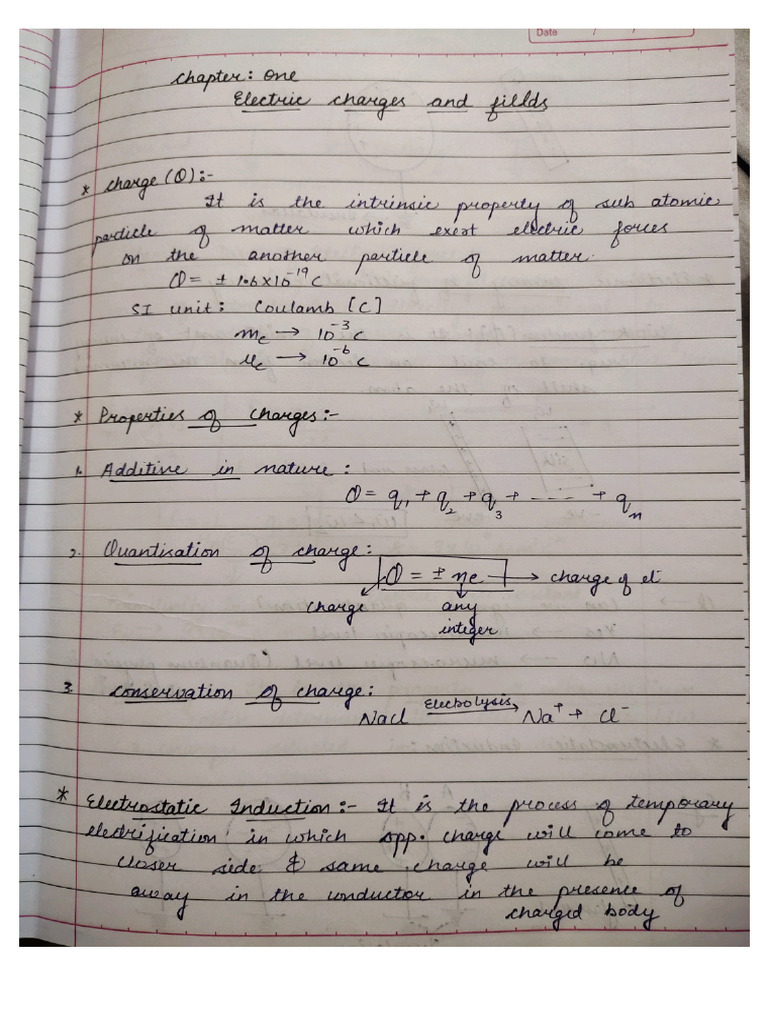 Date / /
Chapter: One
Electric charges and fillds
* Charge (Q):-
It is the intrinsic property of sub atomic
particle of matter which exert electric forces
on the another particle of matter.
Q = ± 1.6×10⁻¹⁹ C
SI unit: Coulamb [C]
mc → 10⁻³ C
μc → 10⁻⁶ C
* Properties of Charges:-
1. Additive in nature:
Q = q₁ + q₂ + q₃ + ----- + qₙ
2. Quantisation of charge:
Q = ± ne → charge of e⁻
charge any
integer
3. Conservation of charge:
NaCl Elecbolysis → Na⁺ + Cl⁻
* Electrostatic Induction:- It is the process of temporary
electrification in which opp. charge will come to
closer side & same charge will be
away in the conductor in the presence of
charged body